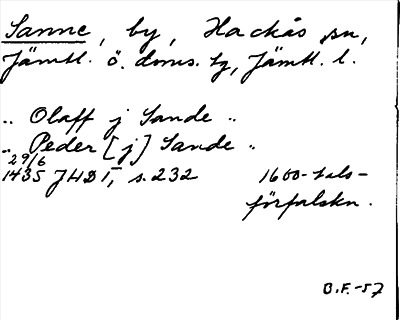 Sanne, by, Hackås sn,
Jämtl. ö. doms. tg, Jämtl. l.
.. Olaff j Sande ..
.. Peder [j] Sande ..
29/6
1435 JHD I, s. 232 1600-tals-
förfalskn.
O.F.-57